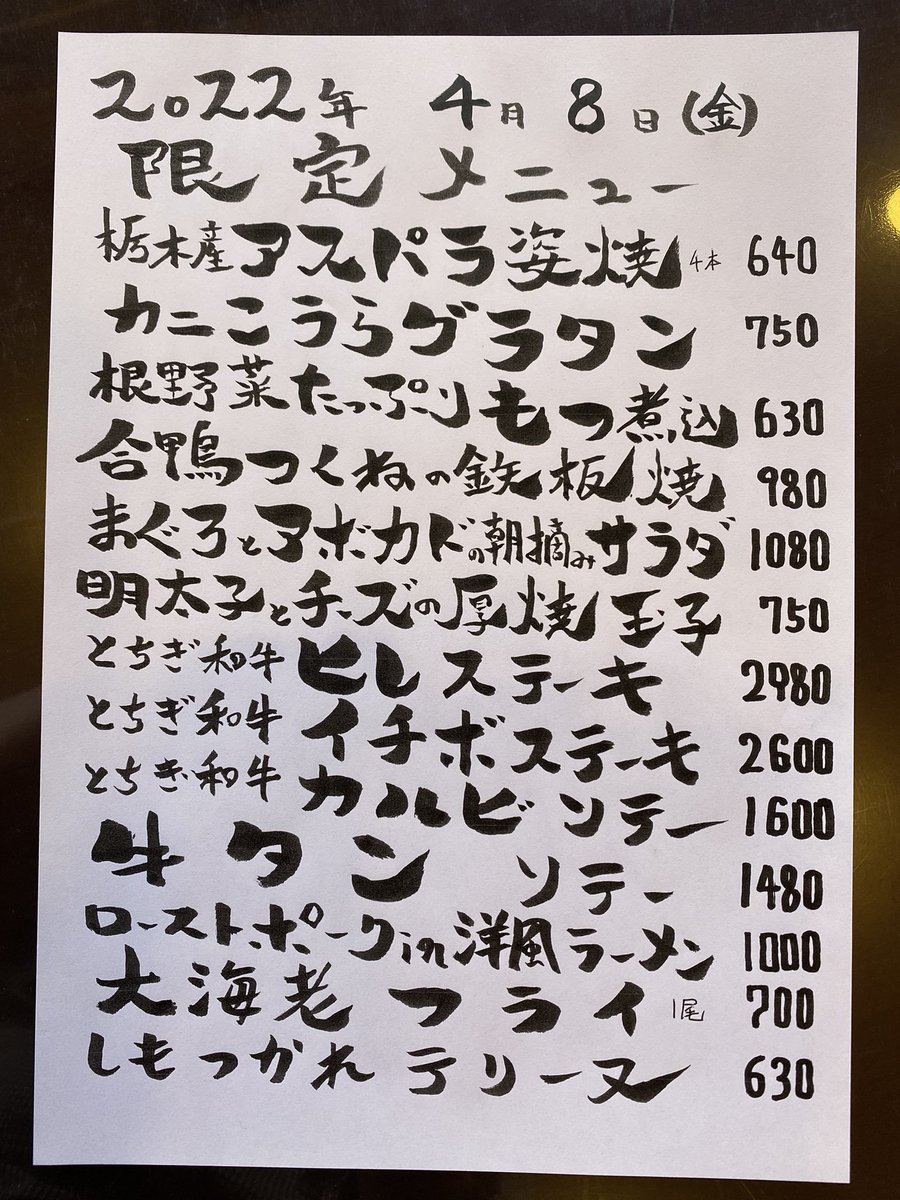 2022年 4月 8日(金)
限定メニュー
栃木産アスパラ姿焼 4本 640
カニこうらグラタン 750
根野菜たっぷりもつ煮込 630
合鴨つくねの鉄板焼 980
まぐろとアボカドの朝摘みサラダ 1080
明太子とチーズの厚焼玉子 750
とちぎ和牛 ヒレステーキ 2980
とちぎ和牛 イチボステーキ 2600
とちぎ和牛 カルビソテー 1600
牛タン ソテー 1480
ローストポークin洋風ラーメン 1000
大海老フライ 1尾 700
しもつかれテリーヌ 630